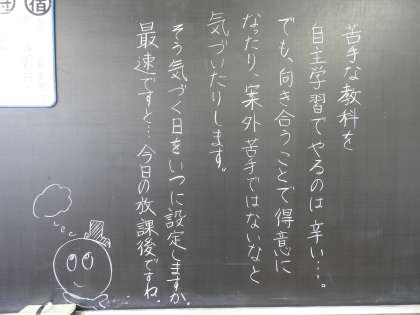 苦手な教科を
自主学習でやるのは辛い…。
でも、向き合うことで得意に
なったり、案外苦手ではないなと
気づいたりします。
そう気づく日をいつに設定しますか。
最速ですと…今日の放課後ですね。
宿